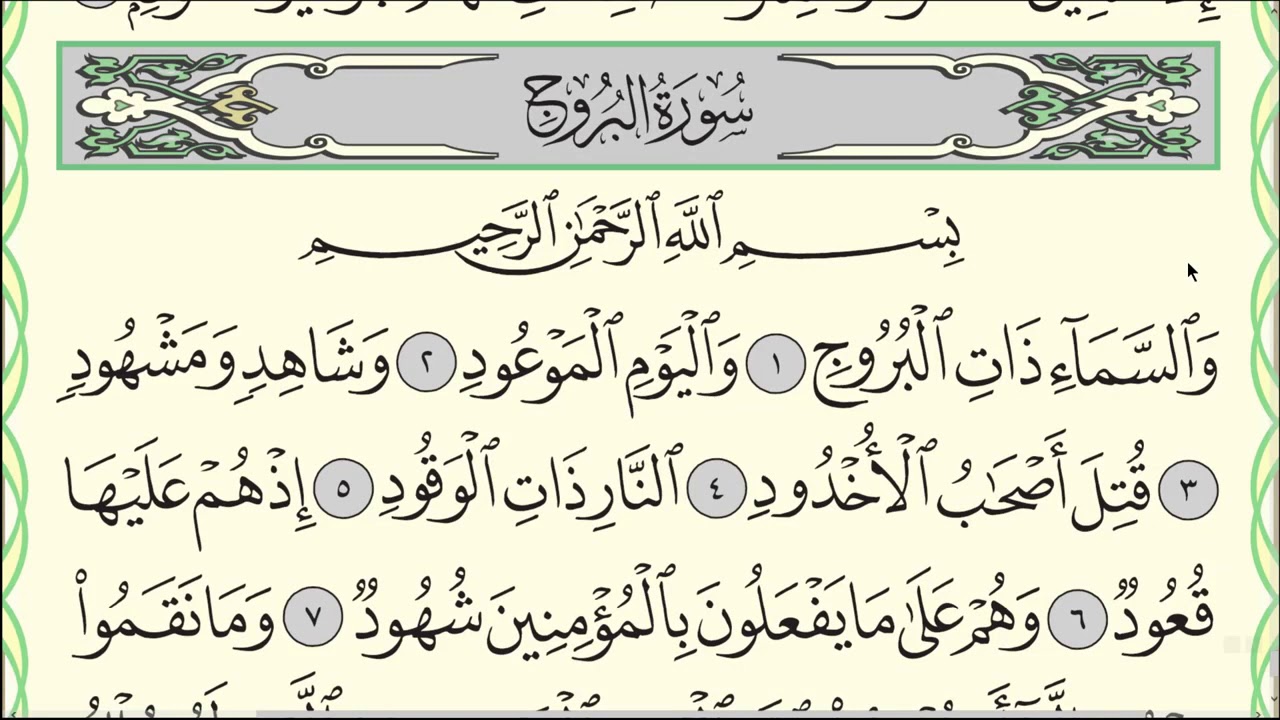 سُورَةُ البُرُوجِ
بِسْمِ ٱللَّهِ ٱلرَّحْمَٰنِ ٱلرَّحِيمِ
وَٱلسَّمَآءِ ذَاتِ ٱلْبُرُوجِ ١ وَٱلْيَوْمِ ٱلْمَوْعُودِ ٢ وَشَاهِدٖ وَمَشْهُودٖ
٣ قُتِلَ أَصْحَٰبُ ٱلْأُخْدُودِ ٤ ٱلنَّارِ ذَاتِ ٱلْوَقُودِ ٥ إِذْ هُمْ عَلَيْهَا
قُعُودٞ ٦ وَهُمْ عَلَىٰ مَا يَفْعَلُونَ بِٱلْمُؤْمِنِينَ شُهُودٞ ٧ وَمَا نَقَمُوا۟